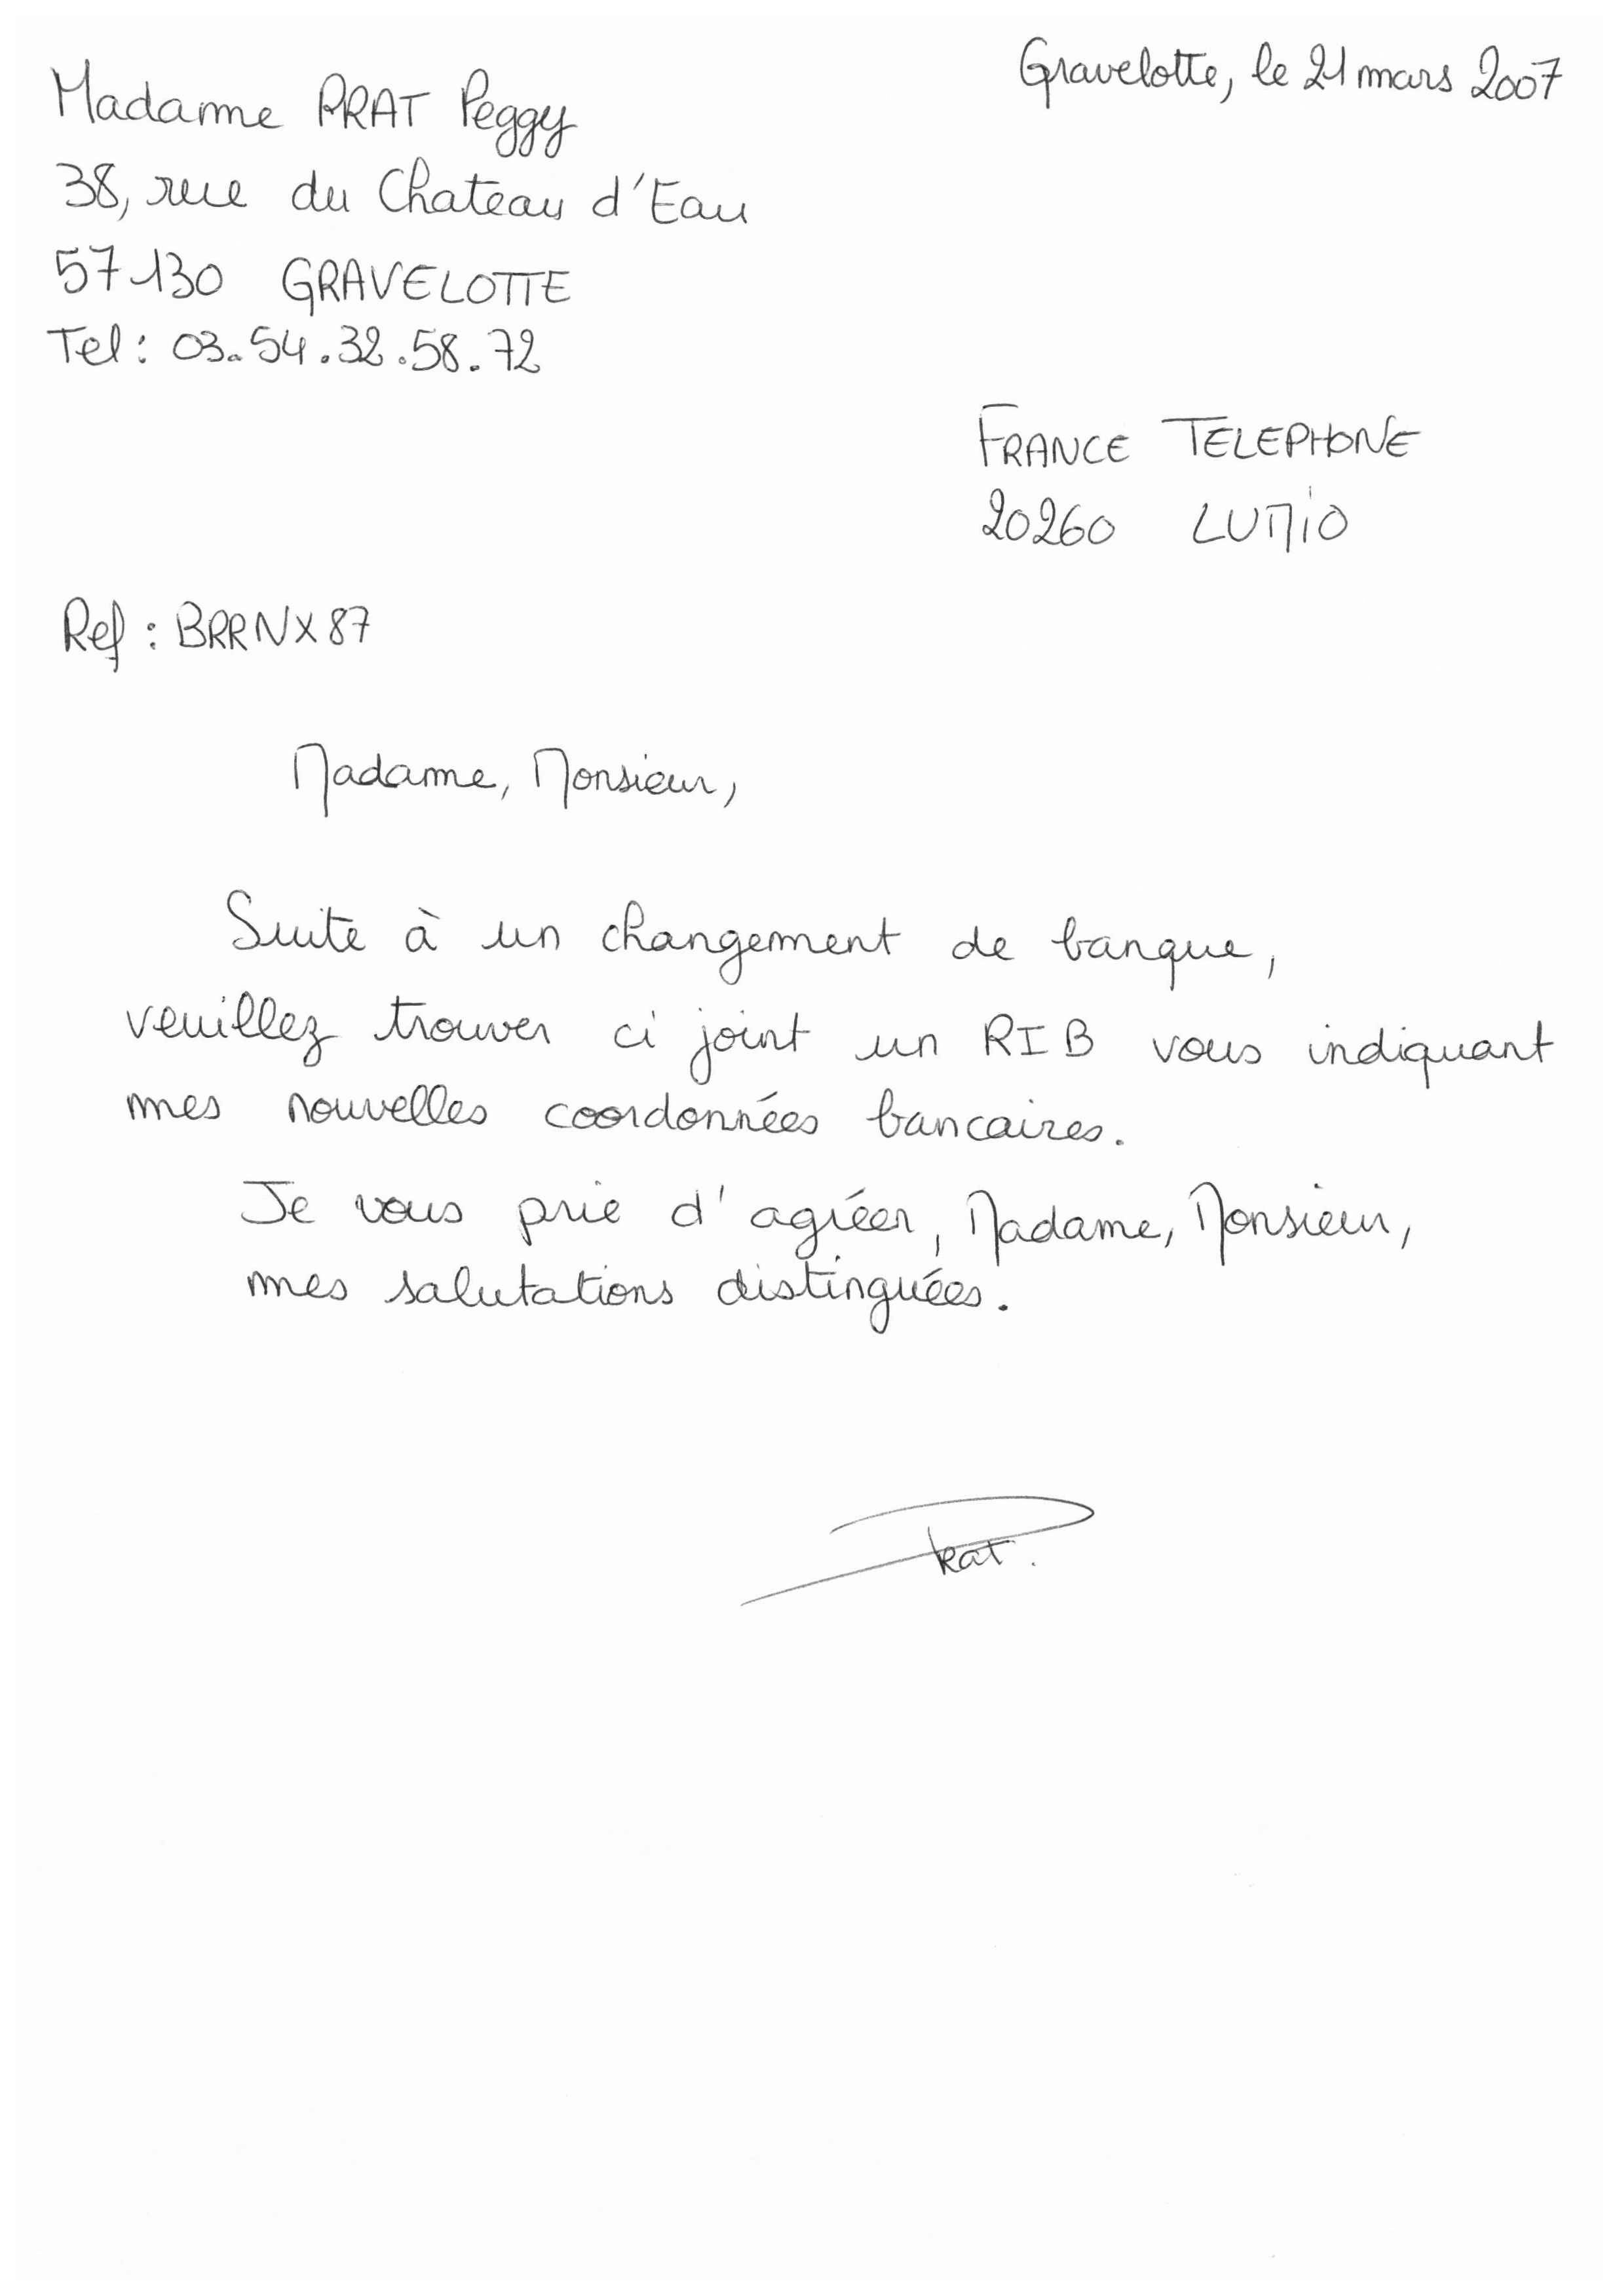 Gravelotte, le 21 mars 2007
Madame PRAT Peggy
38, rue du Chateau d'Eau
57130 GRAVELOTTE
Tel : 03.54.32.58.72
FRANCE TELEPHONE
20260 LUMIO
Ref : BRRNX87
Madame, Monsieur,
Suite à un changement de banque,
veuillez trouver ci joint un RIB vous indiquant
mes nouvelles coordonnées bancaires.
Je vous prie d'agréer, Madame, Monsieur,
mes salutations distinguées.
Prat.